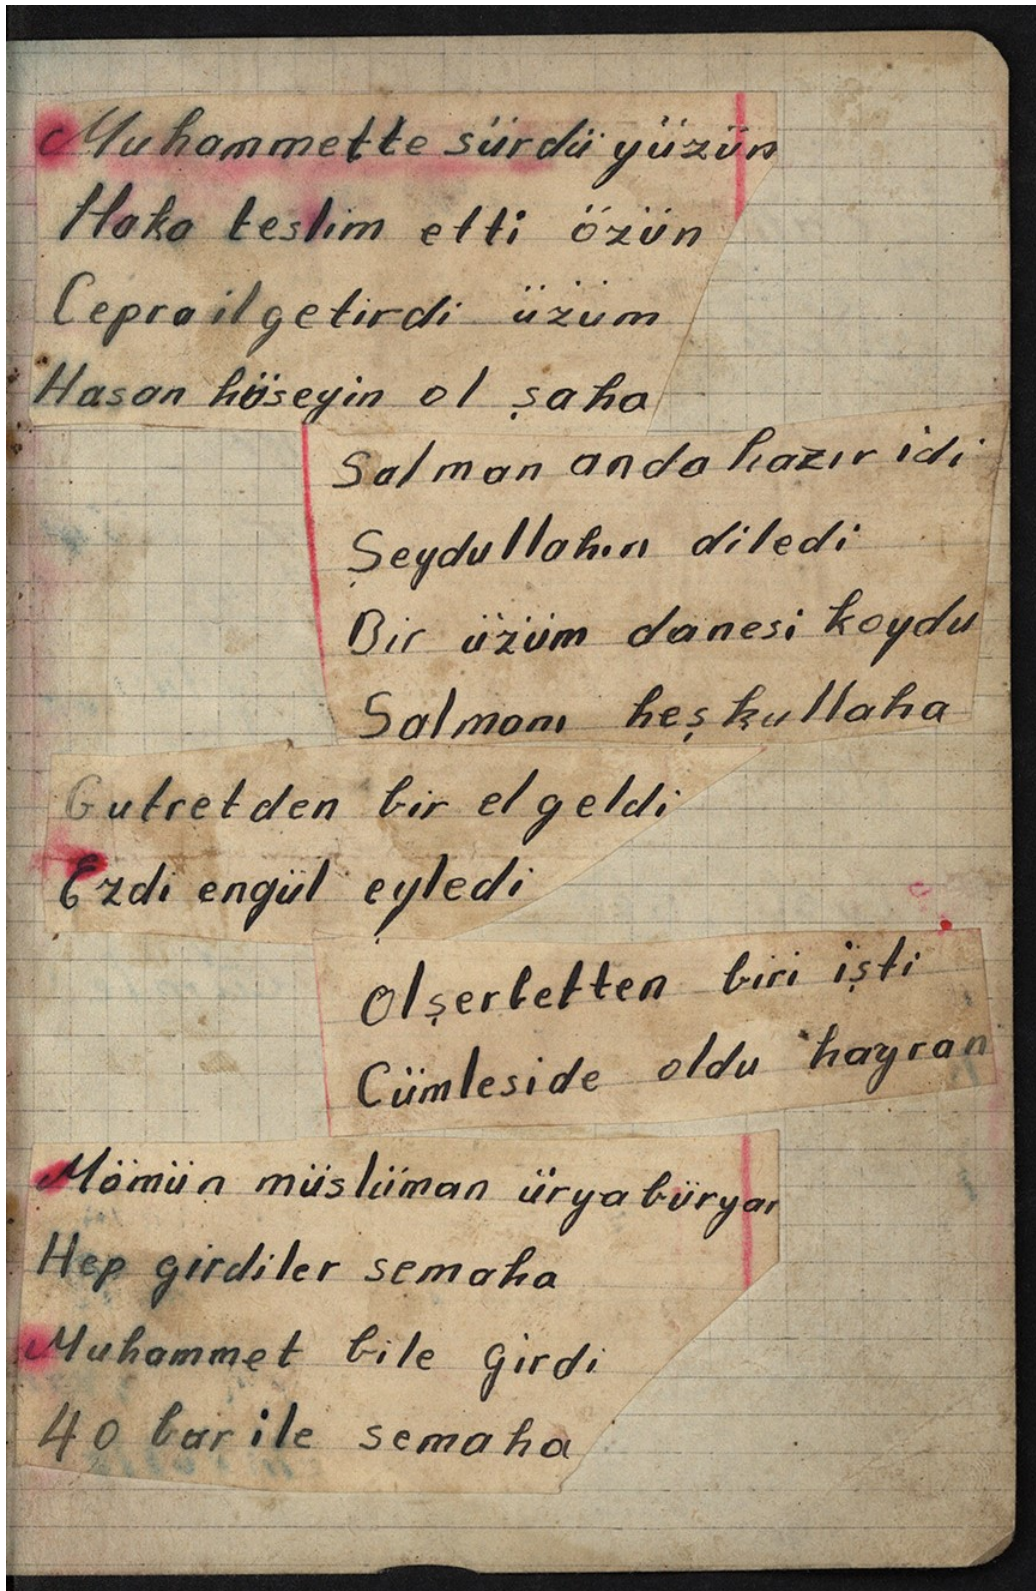 Muhammette sürdü yüzün
Haka teslim etti özün
Ceprail getirdi üzüm
Hasan hüseyin ol şaha
Salman anda hazır idi
Şeydullahın diledi
Bir üzüm danesi koydu
Salmanı heşkullaha
Gutretden bir el geldi
Ezdi engül eyledi
Olşerbetten biri işti
Cümleside oldu hayran
Mömün müslüman ürya büryan
Hep girdiler semaha
Muhammet bile girdi
40 lar ile semaha